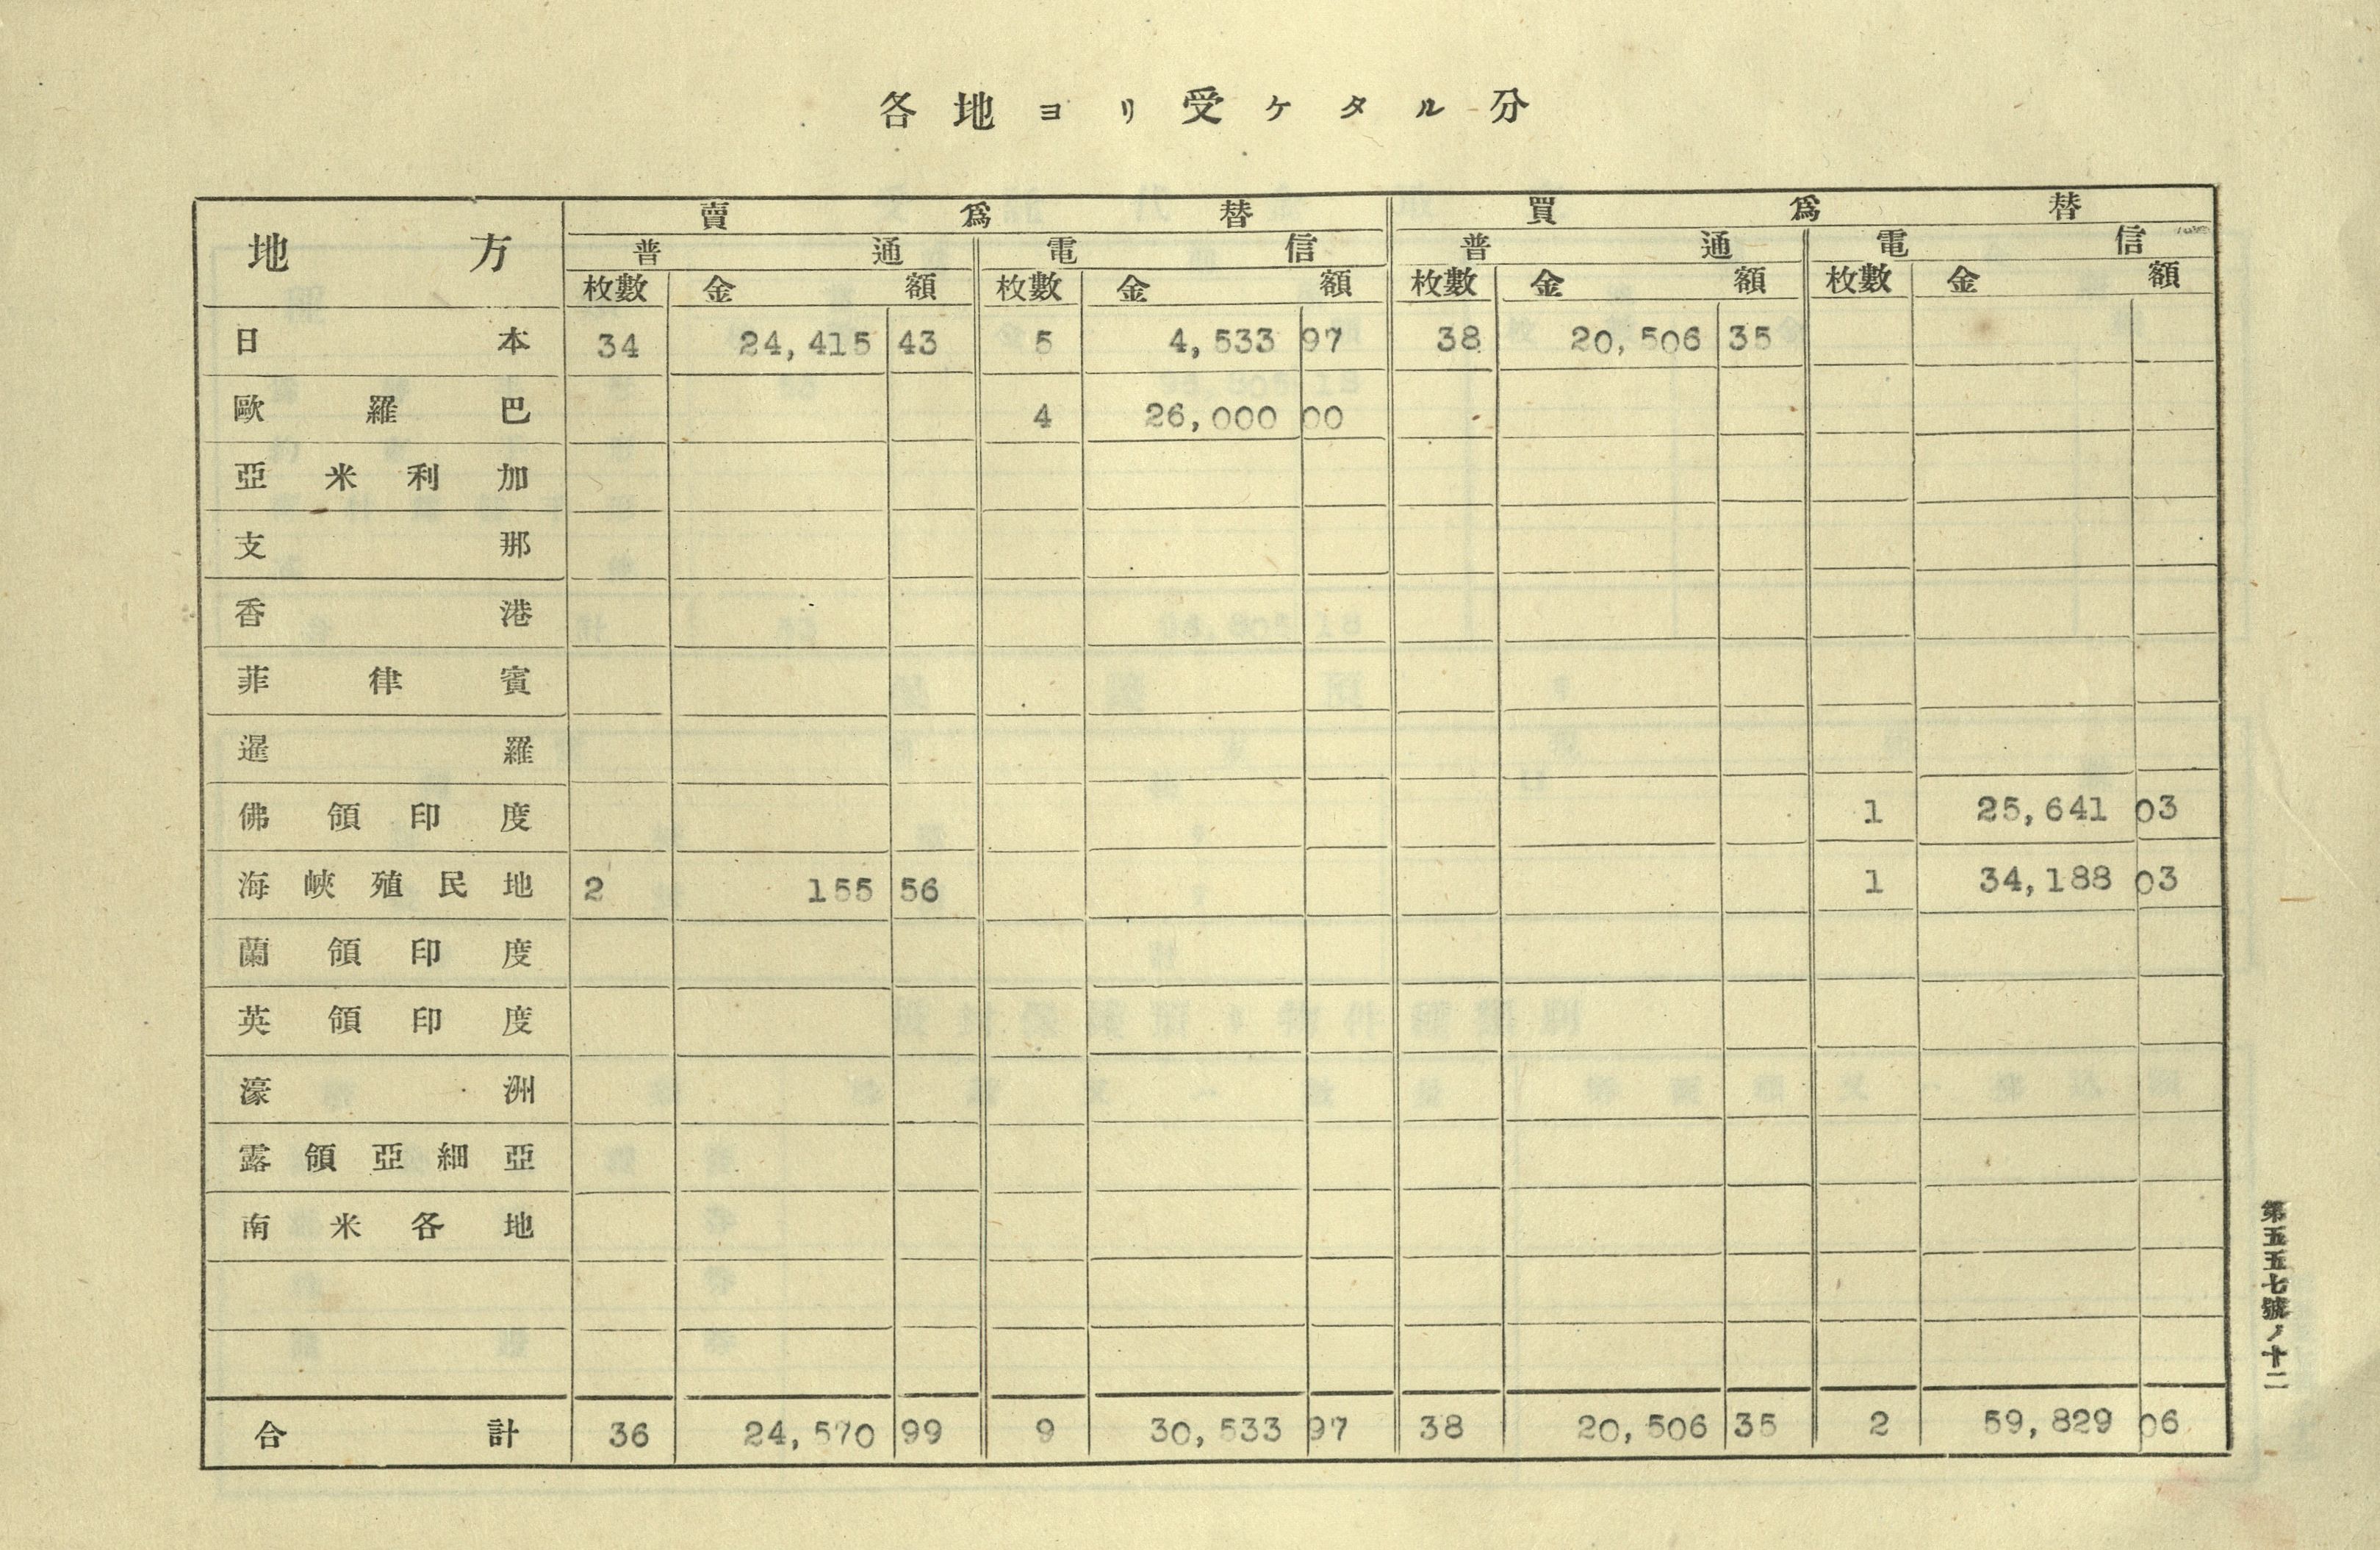 各地ヨリ受ケタル分
地方 賣爲替 買爲替
普通 電信 普通 電信
枚數 金額 枚數 金額 枚數 金額 枚數 金額
日本 34 24,415 43 5 4,533 97 38 20,506 35
歐羅巴 4 26,000 00
亞米利加
支那
香港
菲律賓
暹羅
佛領印度 1 25,641 03
海峽殖民地 2 155 56 1 34,188 03
蘭領印度
英領印度
濠洲
露領亞細亞
南米各地
合計 36 24,570 99 9 30,533 97 38 20,506 35 2 59,829 06
第五五七號ノ十二